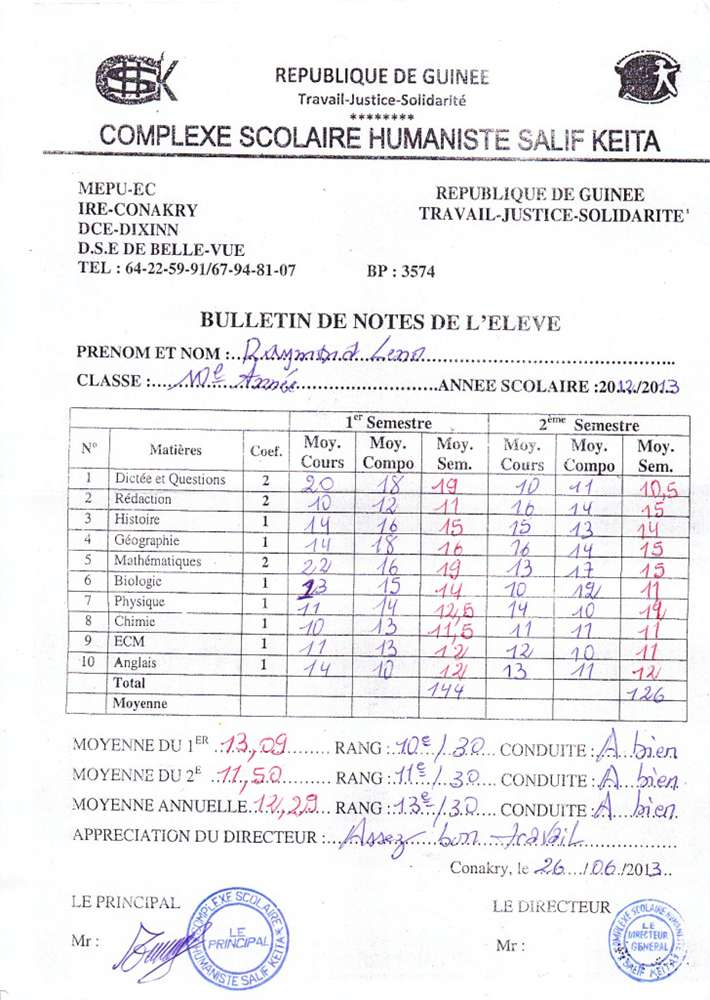 REPUBLIQUE DE GUINEE
Travail-Justice-Solidarité
********
COMPLEXE SCOLAIRE HUMANISTE SALIF KEITA
MEPU-EC
IRE-CONAKRY
DCE-DIXINN
D.S.E DE BELLE-VUE
TEL : 64-22-59-91/67-94-81-07 BP : 3574
REPUBLIQUE DE GUINEE
TRAVAIL-JUSTICE-SOLIDARITE
BULLETIN DE NOTES DE L'ELEVE
PRENOM ET NOM : Raymond Leno
CLASSE : 10e Année ANNEE SCOLAIRE : 2012/2013
1er Semestre 2ème Semestre
N° Matières Coef. Moy. Cours Moy. Compo Moy. Sem. Moy. Cours Moy. Compo Moy. Sem.
1 Dictée et Questions 2 20 18 19 10 11 10,5
2 Rédaction 2 10 12 11 16 14 15
3 Histoire 1 14 16 15 15 13 14
4 Géographie 1 14 18 16 16 14 15
5 Mathématiques 2 22 16 19 13 17 15
6 Biologie 1 13 15 14 10 12 11
7 Physique 1 11 14 12,5 14 10 12
8 Chimie 1 10 13 11,5 11 11 11
9 ECM 1 11 13 12 12 10 11
10 Anglais 1 14 10 12 13 11 12
Total 144 126
Moyenne
MOYENNE DU 1ER 13,09 RANG : 10e/30 CONDUITE : A bien
MOYENNE DU 2E 11,50 RANG : 11e/30 CONDUITE : A bien
MOYENNE ANNUELLE 12,29 RANG : 13e/30 CONDUITE : A bien
APPRECIATION DU DIRECTEUR : Assez bon travail
Conakry, le 26/06/2013
LE PRINCIPAL LE DIRECTEUR
Mr : Mr :
COMPLEXE SCOLAIRE HUMANISTE SALIF KEITA
LE PRINCIPAL
COMPLEXE SCOLAIRE HUMANISTE SALIF KEITA
LE DIRECTEUR GENERAL